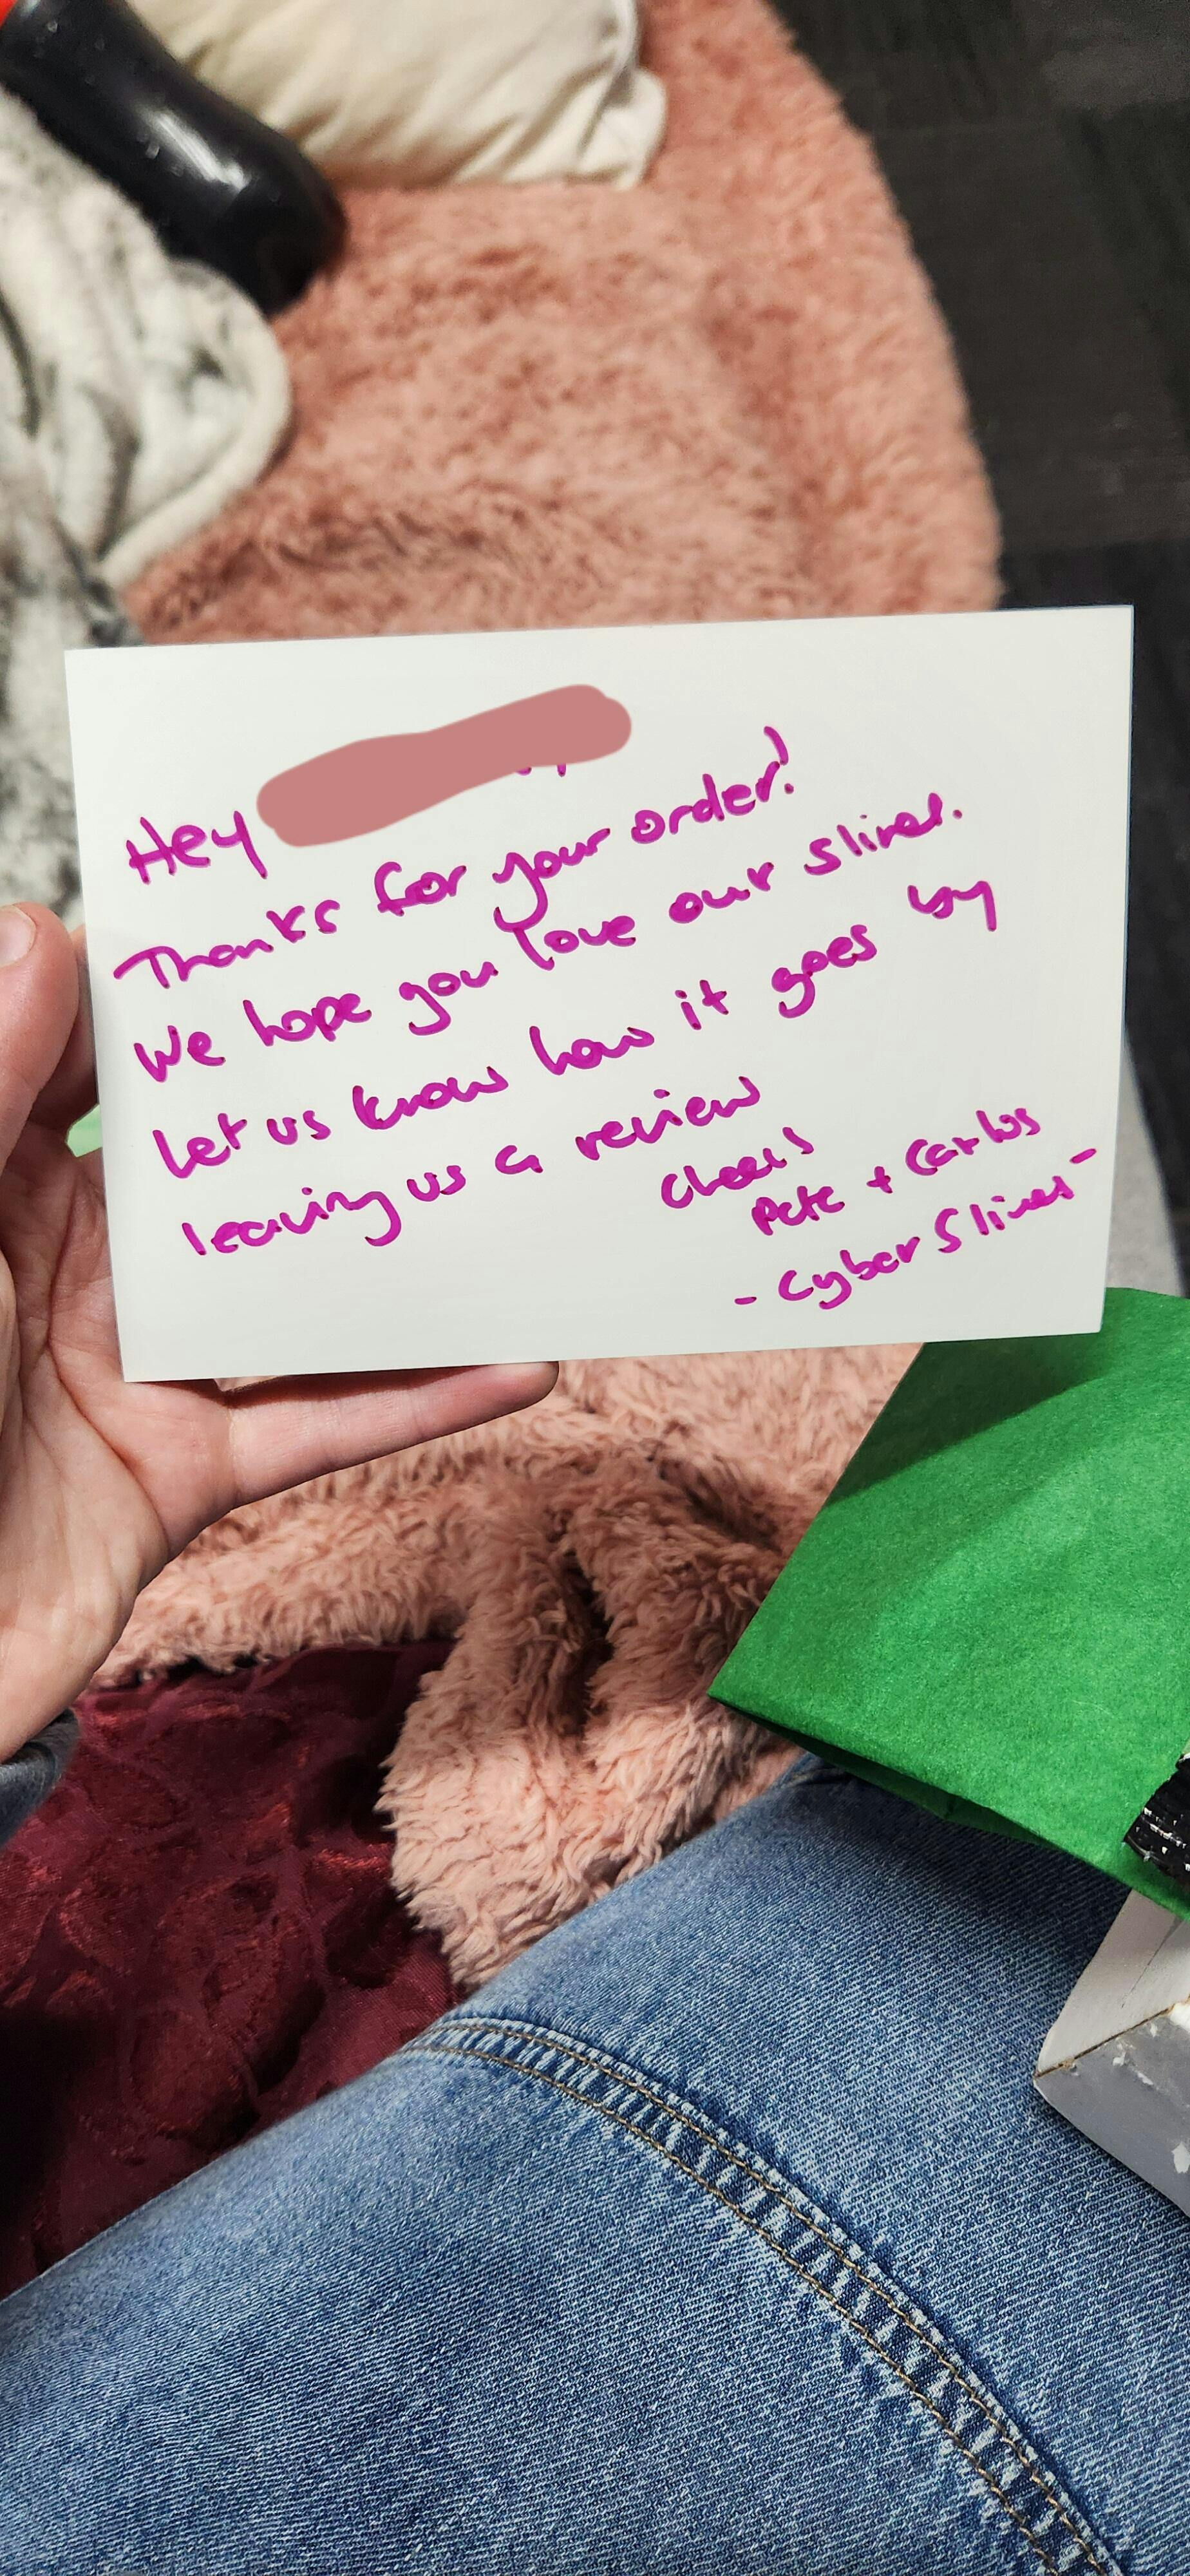 Hey
Thanks for your order!
We hope you love our slimes.
Let us know how it goes by
leaving us a review
Cheers
Pete + Carlos
- Cyber Slimes -